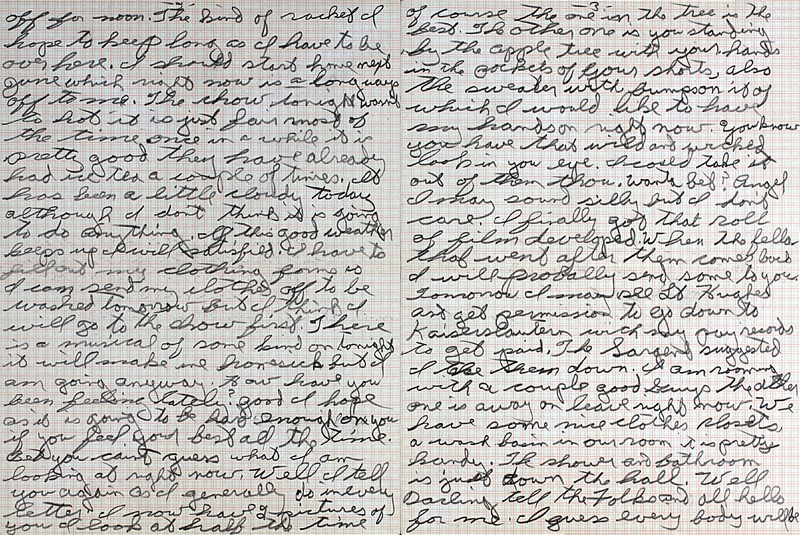 off for noon. The kind of racket I
hope to keep long as I have to be
over here. I should start home next
June which right now is a long ways
off to me. The chow tonight wasnt
to hot it is just fair most of
the time once in a while it is
pretty good they have already
had ice tea a couple of times. It
has been a little cloudy today
although I dont think it is going
to do anything. If this good weather
keeps up I will satisfied. I have to
fill out my clothing forms so
I can send my clothes off to be
washed tomorrow but I think I
will go to the show first. There
is a musical of some kind on tonight
it will make me homesick but I
am going anyway. How have you
been feeling lately? good I hope
as it is going to be hard enough on you
if you feel your best all the time.
Bet you cant guess what I am
looking at right now. Well I tell
you again as I generally do in every
letter I now have 3 pictures of
you I look at half the time
of course the one in the tree is the
best. The other one is you standing
by the apple tree with your hands
in the pockets of your shorts, also
the sweater with bumps on it of
which I would like to have
my hands on right now. You know
you have that wild and wicked
look in you eye. I could take it
out of them thou. Wanta bet? Angel
I may sound silly but I dont
care. I finally got that roll
of film developed. When the fella
that went after them comes back
I will probally send some to you.
Tomorrow I may see Lt Hughes
and get permission to go down to
Kaiserslautern with my pay records
to get paid. The Sargent suggested
I take them down. I am rooming
with a couple good guys the other
one is away on leave right now. We
have some nice clothes closets,
a wash basin in our room it is pretty
handy. The shower and bathroom
is just down the hall. Well
Darling tell the Folks and all hello
for me. I guess every body will be